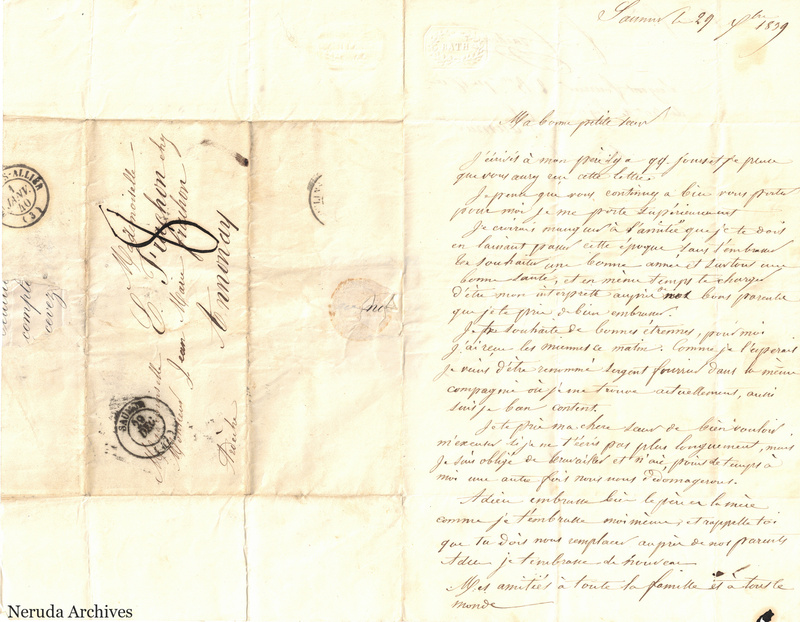 Saumur le 29 Xbre 1839
Ma bonne petite sœur
J'écrivis à mon père il y a qq. jours et je pense
que vous aurez reçu cette lettre.
Je pense que vous continuez à bien vous porter
pour moi je me porte supérieurement
Je croirais manquer à l'amitié que je te dois
en laissant passer cette époque sans t'embrasser
te souhaiter une bonne année et surtout une
bonne santé, et en même temps te charger
d'être mon interprète auprès nos bons parents
que je te prie de bien embrasser.
Je te souhaite de bonnes étrennes, pour moi
j'ai reçu les miennes ce matin. Comme je l'espérais
je viens d'être renommé sergent fourrier dans la même
compagnie où je me trouve actuellement, aussi
suis je bien content.
Je te prie ma chère sœur de bien vouloir
m'excuser si je ne t'écris pas plus longuement, mais
je suis obligé de travailler et n'ai point de temps à
moi une autre fois nous nous dédomagerons.
Adieu embrasse bien le père et la mère
comme je t'embrasse moi même, et rappelle toi
que tu dois nous remplacer auprès de nos parents
Adieu je t'embrasse de nouveau
Mes amitiés à toute la famille et à tout le
monde
Mademoiselle
E. Fruchon chez
Monsieur Jean Marie Fruchon
Annonay
Ardèche
8
SAUMUR
29
DEC.
S-ALLIER
1
JANV.
40
(3)
compte
Neruda Archives